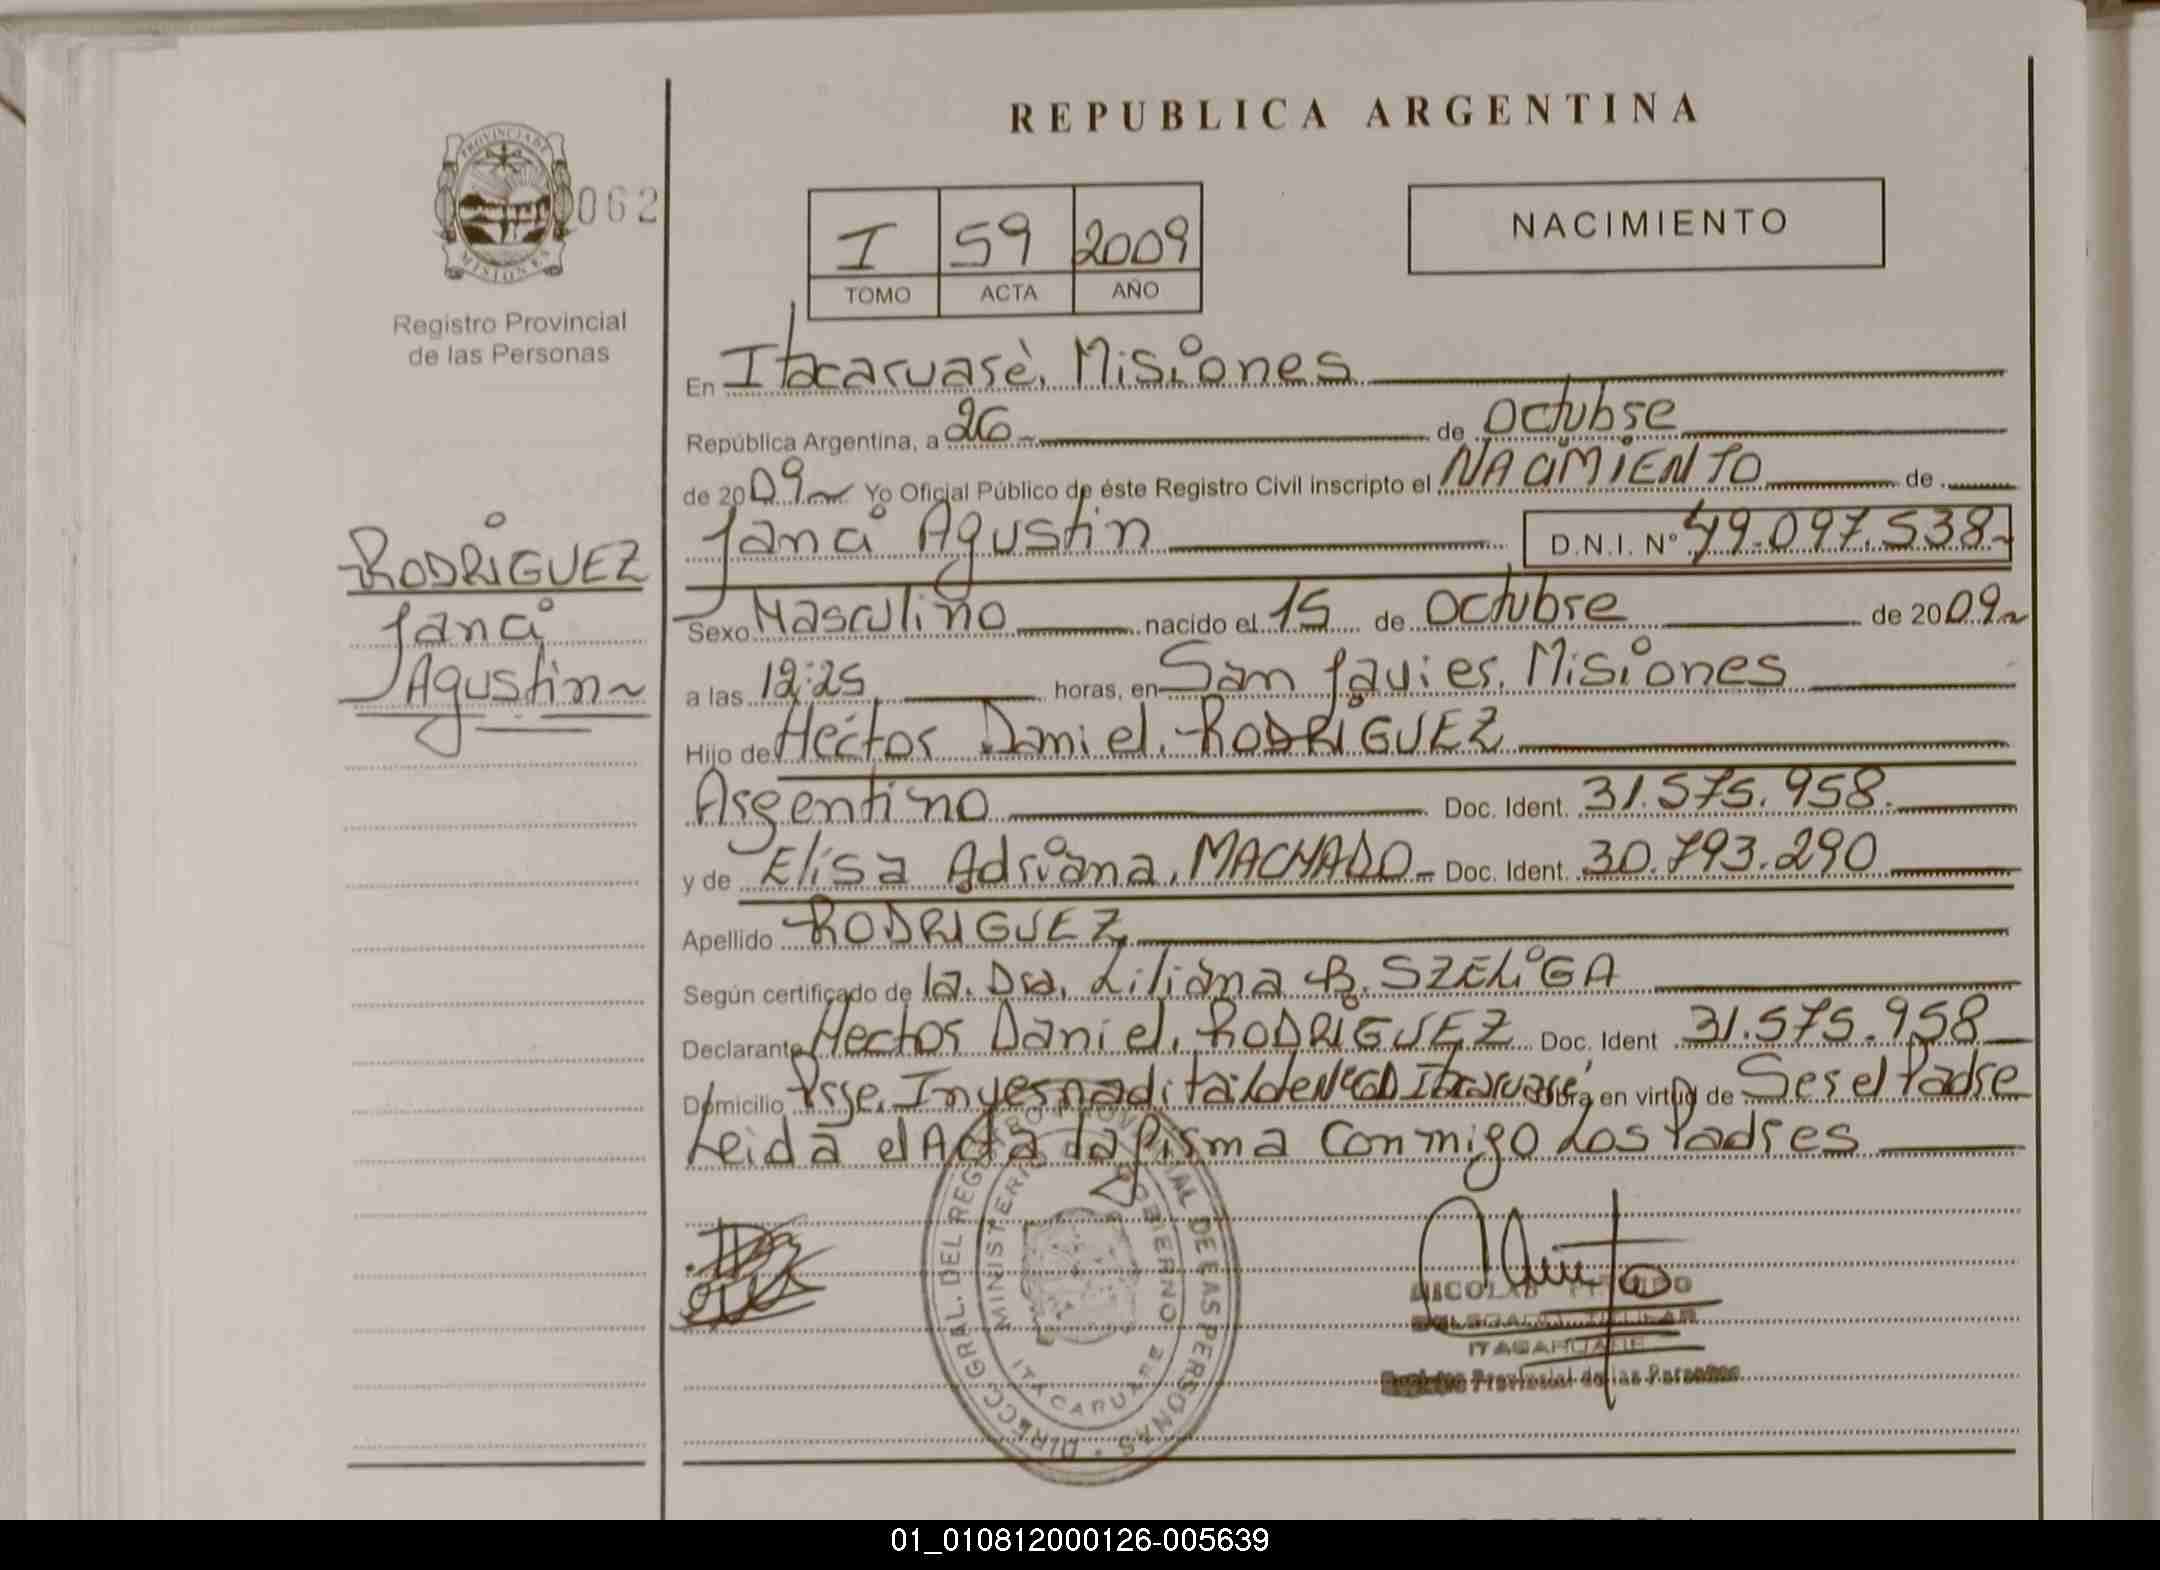 REPUBLICA ARGENTINA
PROVINCIA DE
MISIONES
062
Registro Provincial
de las Personas
I 59 2009
TOMO ACTA AÑO
NACIMIENTO
En Itacaruarè, Misiones
República Argentina, a 26 de Octubre
de 2009 Yo Oficial Público de éste Registro Civil inscripto el NACIMIENTO de
Janci Agustin D.N.I. Nº 49.097.538
RODRIGUEZ
Janci
Agustin
Sexo Masculino nacido el 15 de Octubre de 2009
a las 12:25 horas, en San Javier, Misiones
Hijo de Hector Daniel, RODRIGUEZ
Argentino Doc. Ident. 31.575.958
y de Elisa Adriana, MACHADO Doc. Ident. 30.793.290
Apellido RODRIGUEZ
Según certificado de la. Dra. Liliana B. SZELIGA
Declarante Hector Daniel, RODRIGUEZ Doc. Ident 31.575.958
Domicilio Itacaruaré Obra en virtud de Ser el Padre
Leida el Acta la firma Conmigo Los Padres
DIRECC. GRAL. DEL REGISTRO PROVINCIAL DE LAS PERSONAS
MINISTERIO DE GOBIERNO
ITACARUARE
NICOLAS
DELEGADO TITULAR
ITACARUARE
Registro Provincial de las Personas
01_010812000126-005639